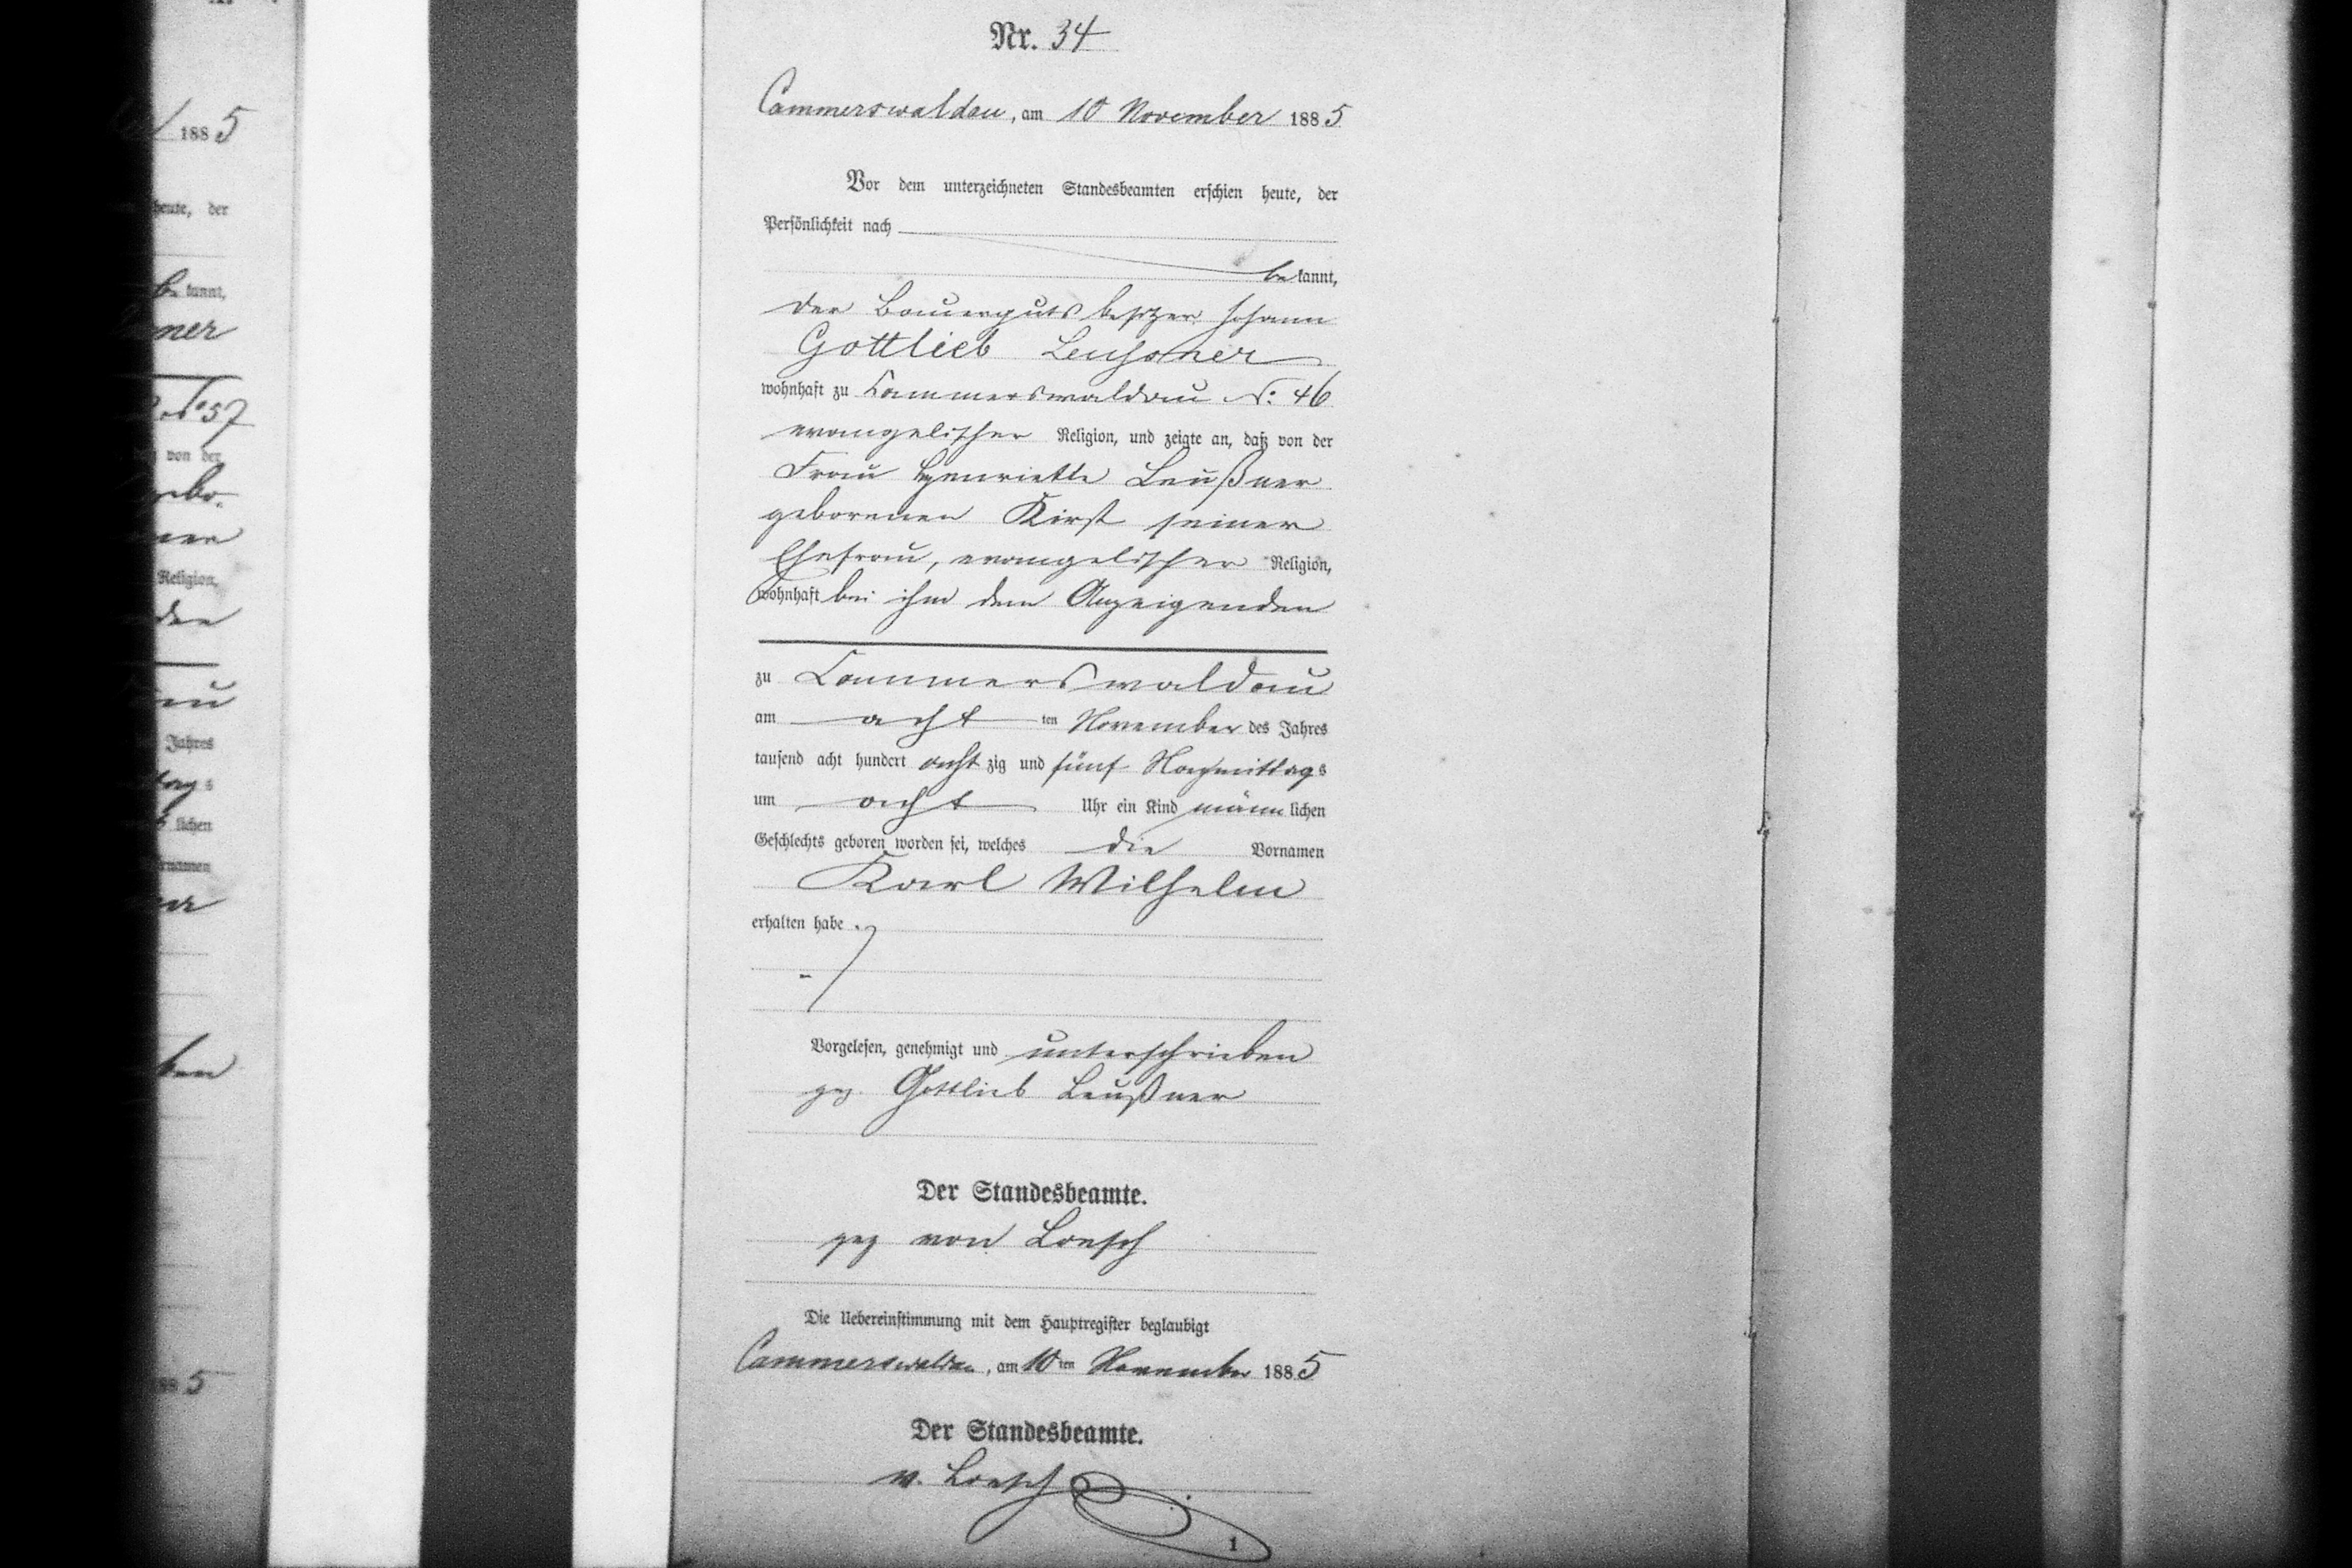 188 5
heute, der
be kannt,
ner
No 57
von der
gebo-
ner
Religion,
den
au
Jahres
tag s
lichen
rnamen
ben
188 5
Nr. 34
Cammerswaldau, am 10 November 188 5
Vor dem unterzeichneten Standesbeamten erschien heute, der
Persönlichkeit nach
be kannt,
der Bauerguts besitzer Johann
Gottlieb Leussner
wohnhaft zu Cammerswaldau N: 46
evangelischer Religion, und zeigte an, daß von der
Frau Henriette Leußner
geborenen Kirst seiner
Ehefrau, evangelischer Religion,
wohnhaft bei ihm dem Anzeigenden
zu Cammerswaldau
am acht ten November des Jahres
tausend acht hundert acht zig und fünf Nachmittag s
um acht Uhr ein Kind männ lichen
Geschlechts geboren worden sei, welches die Vornamen
Karl Wilhelm
erhalten habe.
Vorgelesen, genehmigt und unterschrieben
gez. Gottlieb Leußner
Der Standesbeamte.
gez von Loesch
Die Uebereinstimmung mit dem Hauptregister beglaubigt
Cammerswaldau, am 10 ten November 188 5
Der Standesbeamte.
v. Loesch
1